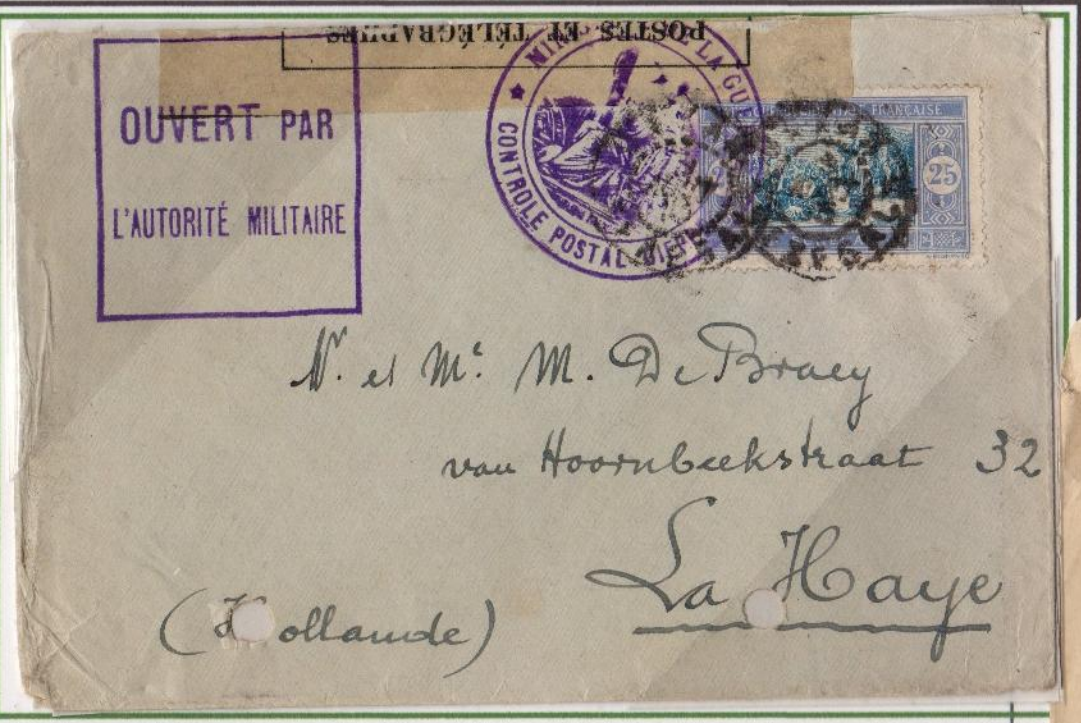 POSTES ET TÉLÉGRAPHES
OUVERT PAR
L'AUTORITÉ MILITAIRE
LA GUE
CONTROLE POSTAL DIEPP
FRANÇAISE
25
et Me. M. De Braey
van Hoornbeekstraat 32
La Haye
(Hollande)